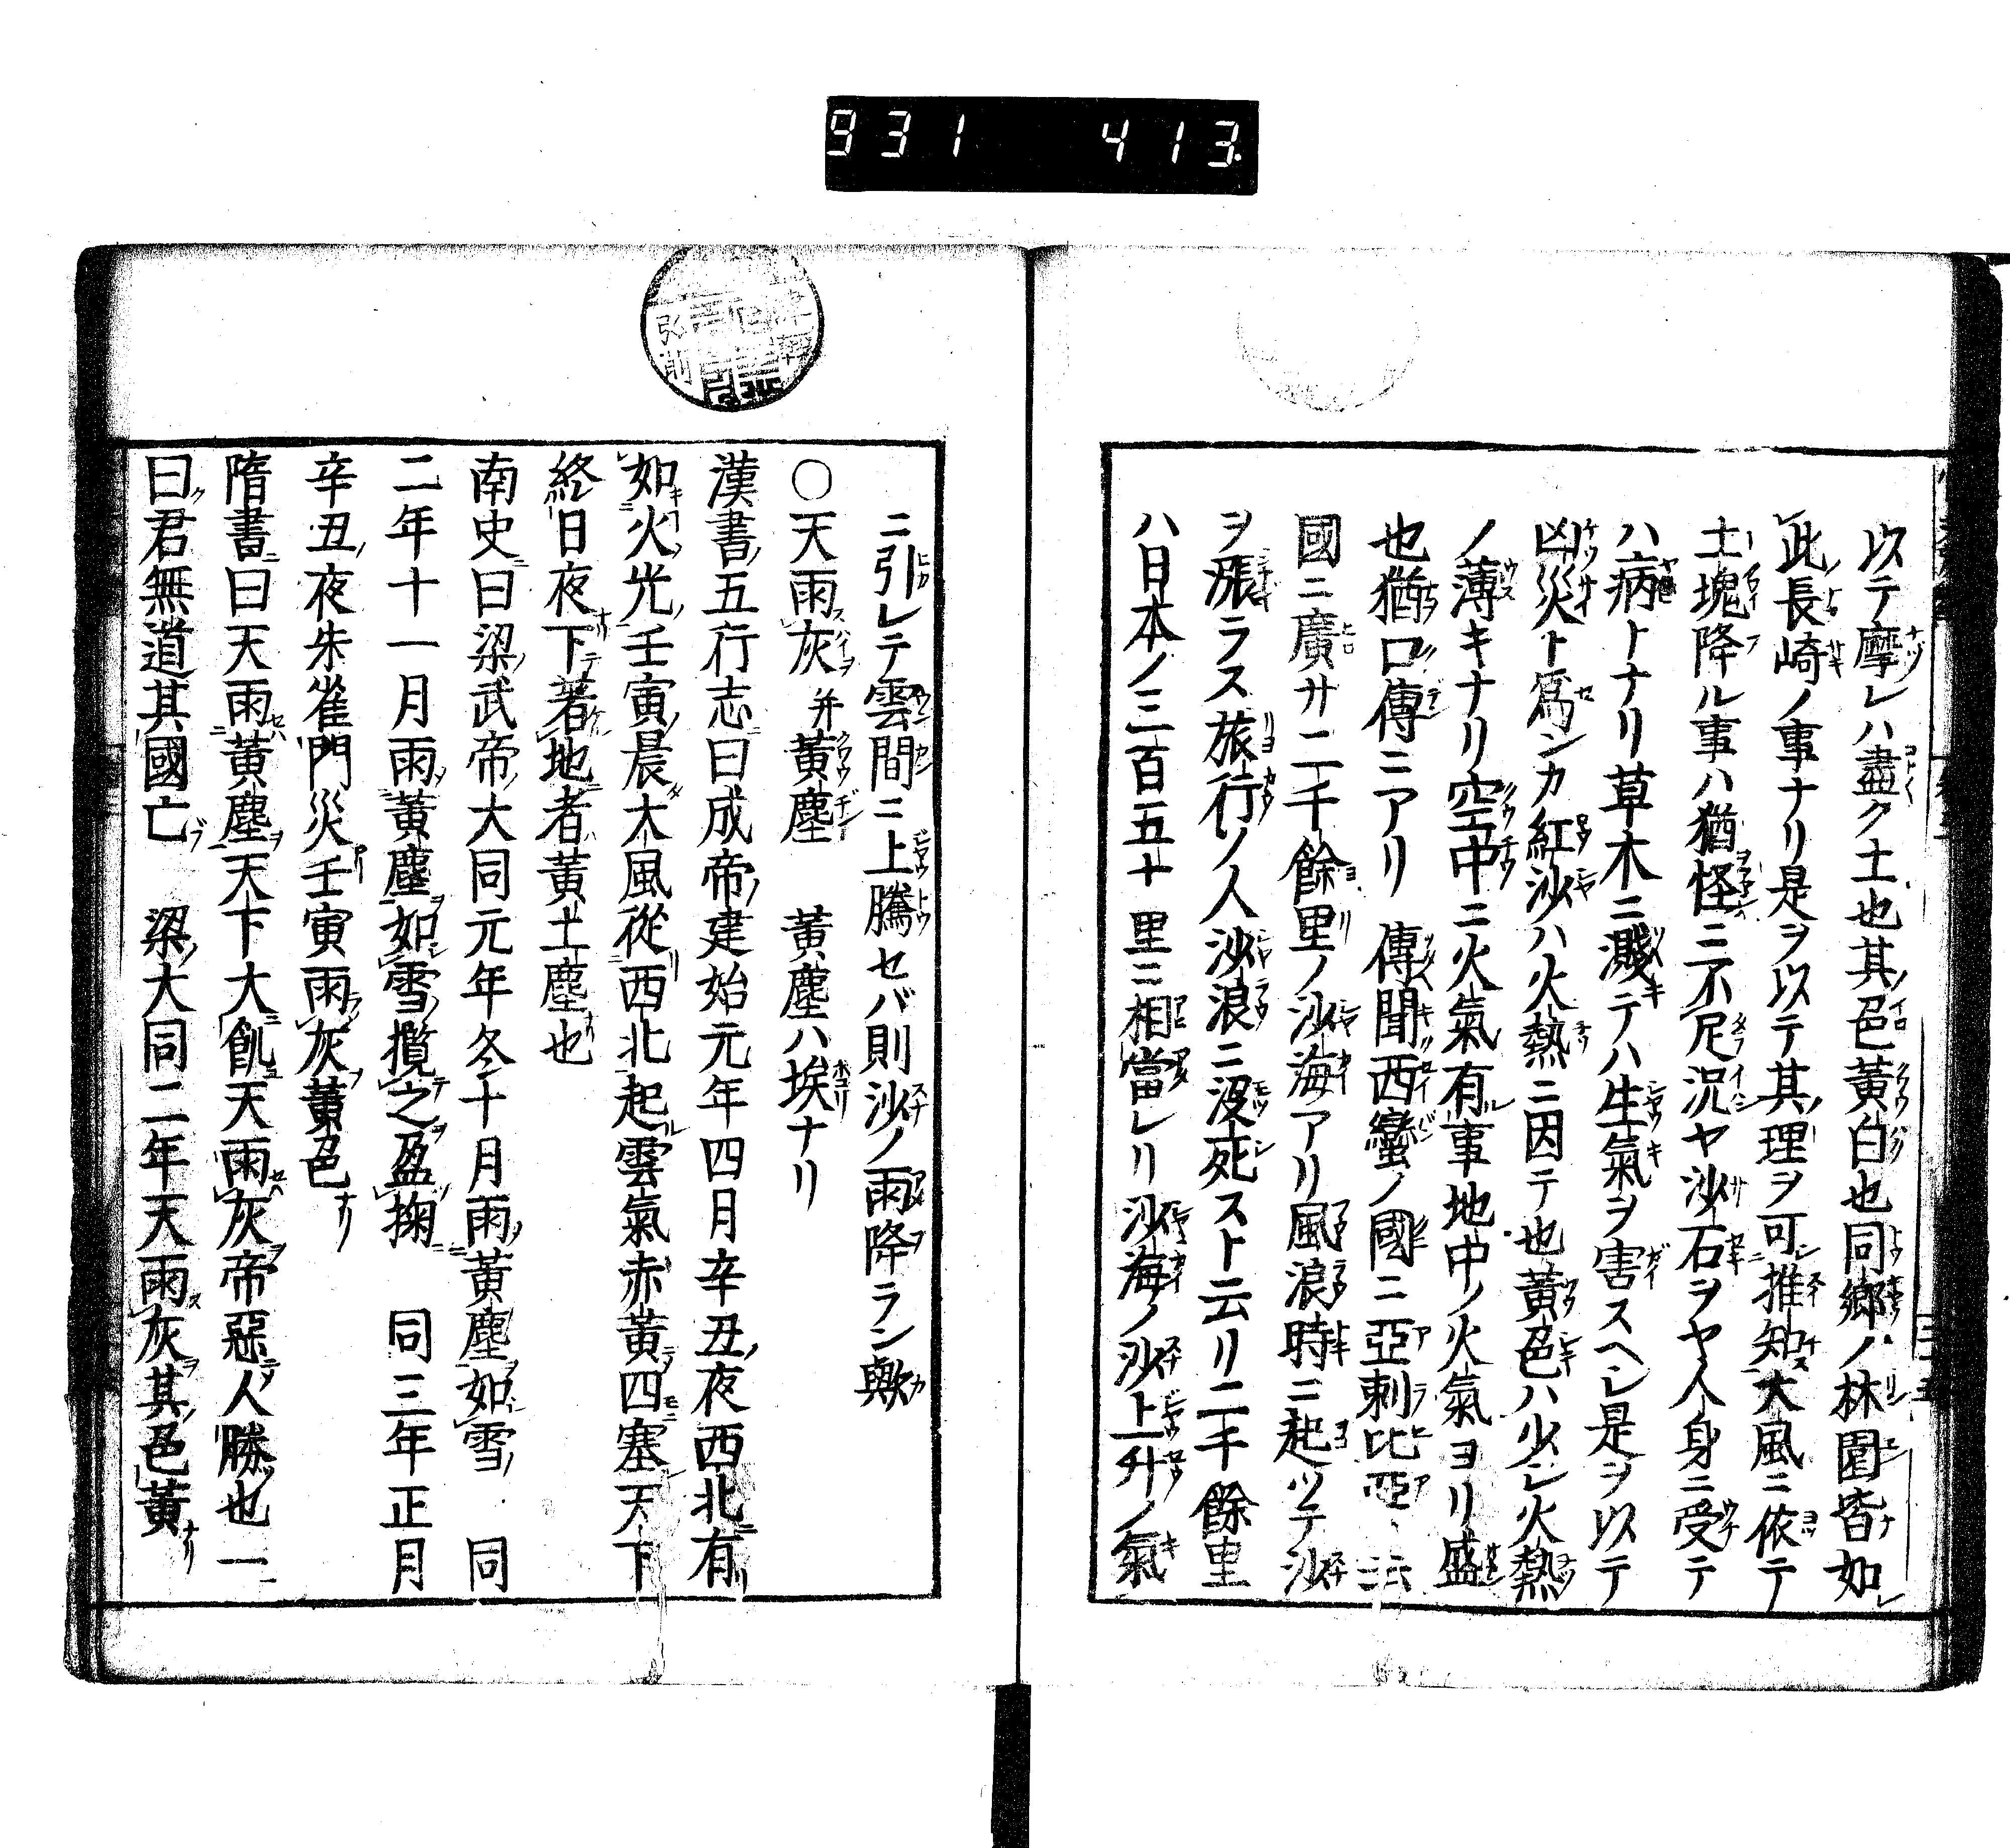 931 413
以テ摩レハ盡ク土也其色黃白也同鄉ノ林園皆如
此長崎ノ事ナリ是ヲ以テ其理ヲ可推知大風ニ依テ
土塊降ル事ハ猶怪ニ不足況ヤ沙石ヲヤ人身ニ受テ
ハ病トナリ草木ニ濺テハ生氣ヲ害スヘシ是ヲ以テ
凶災ト爲ンカ紅沙ハ火熱ニ因テ也黃色ハ少シ火熱
ノ薄キナリ空中ニ火氣有事地中ノ火氣ヨリ盛
也猶口傳ニアリ 傳聞西蠻ノ國ニ亞剌比亞云
國ニ廣サ二千餘里ノ沙海アリ風浪時ニ起ツテ沙
ヲ漲ラス旅行ノ人沙浪ニ沒死スト云リ二千餘里
ハ日本ノ三百五十里ニ相當レリ沙海ノ沙上升ノ氣
ニ引レテ雲間ニ上騰セバ則沙ノ雨降ラン歟
○天雨灰 并黃塵 黃塵ハ埃ナリ
漢書五行志曰成帝建始元年四月辛丑夜西北有
如火光壬寅晨大風從西北起雲氣赤黃四塞天下
終日夜下著地者黃土塵也
南史曰梁武帝大同元年冬十月雨黃塵如雪 同
二年十一月雨黃塵如雪攬之盈掬 同三年正月
辛丑夜朱雀門災壬寅雨灰黃色
隋書曰天雨黃塵天下大飢天雨灰帝惡人勝也一
曰君無道其國亡 梁大同二年天雨灰其色黃